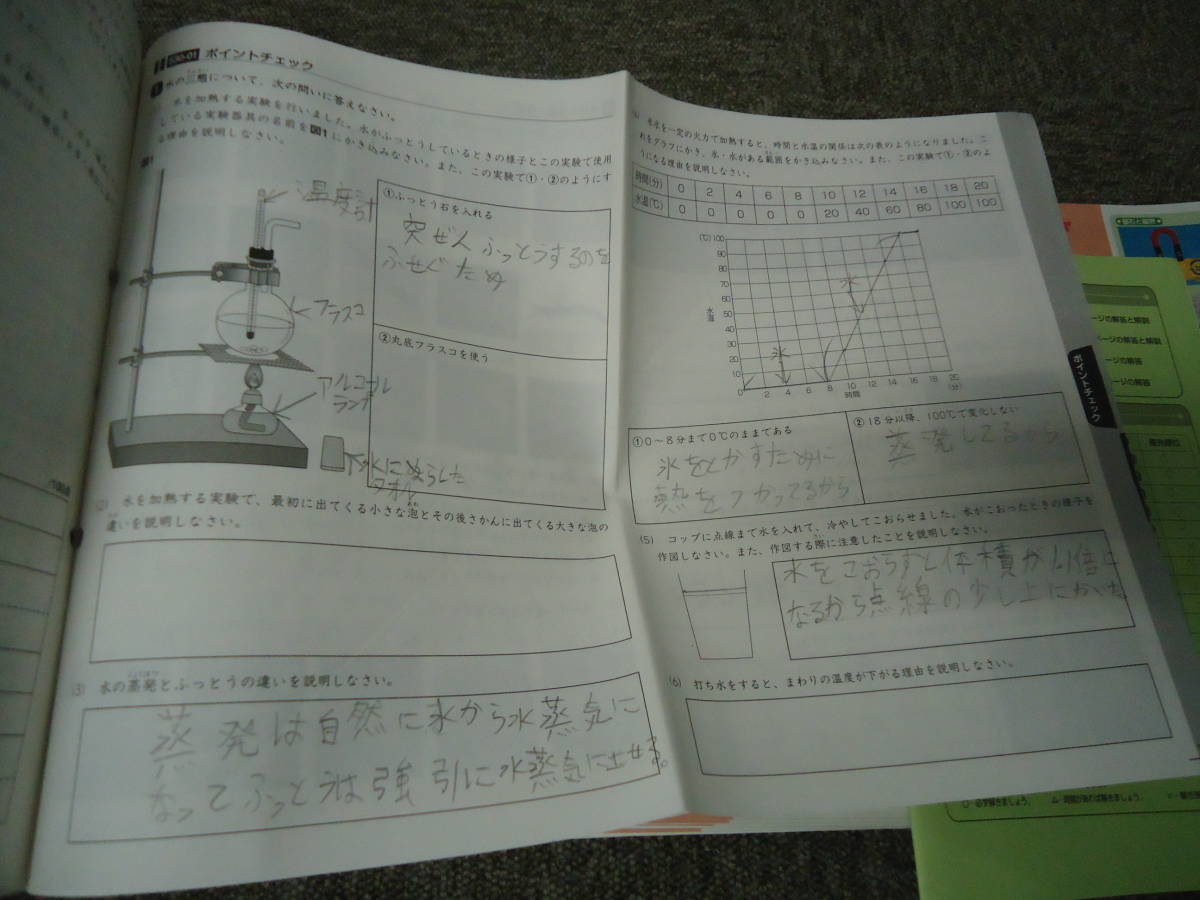 ポイントチェック
1 水の三態について、次の問いに答えなさい。
水を加熱する実験を行いました。水がふっとうしているときの様子とこの実験で使用
している実験器具の名前を図1にかき込みなさい。また、この実験で①・②のようにす
る理由を説明しなさい。
図1
温度計
フラスコ
アルコール
ランプ
水にぬらした
タオル
①ふっとう石を入れる
突ぜんふっとうするのを
ふせぐため
②丸底フラスコを使う
(2) 水を加熱する実験で、最初に出てくる小さな泡とその後さかんに出てくる大きな泡の
違いを説明しなさい。
(3) 水の蒸発とふっとうの違いを説明しなさい。
蒸発は自然に水から水蒸気に
なってふっとうは強引に水蒸気に出せる。
(4) 氷水を一定の火力で加熱すると、時間と水温の関係は次の表のようになりました。こ
れをグラフにかき、氷・水がある範囲をかき込みなさい。また、この実験で①・②のよ
うになる理由を説明しなさい。
時間(分) 0 2 4 6 8 10 12 14 16 18 20
水温(℃) 0 0 0 0 0 20 40 60 80 100 100
(℃)
100
90
80
70
60
50
40
30
20
10
0
水温
水
氷
0 2 4 6 8 10 12 14 16 18 20 25
時間
(分)
①0～8分まで0℃のままである
氷をとかすために
熱をつかってるから
②18分以降、100℃で変化しない
蒸発してるから
(5) コップに点線まで水を入れて、冷やしてこおらせました。水がこおったときの様子を
作図しなさい。また、作図する際に注意したことを説明しなさい。
水をこおらすと体積が1.1倍に
なるから点線の少し上にかいた
(6) 打ち水をすると、まわりの温度が下がる理由を説明しなさい。
ポイントチェック
ページの解答と解説
ページの解答と解説
ページの解答
ページの解答
優先順位